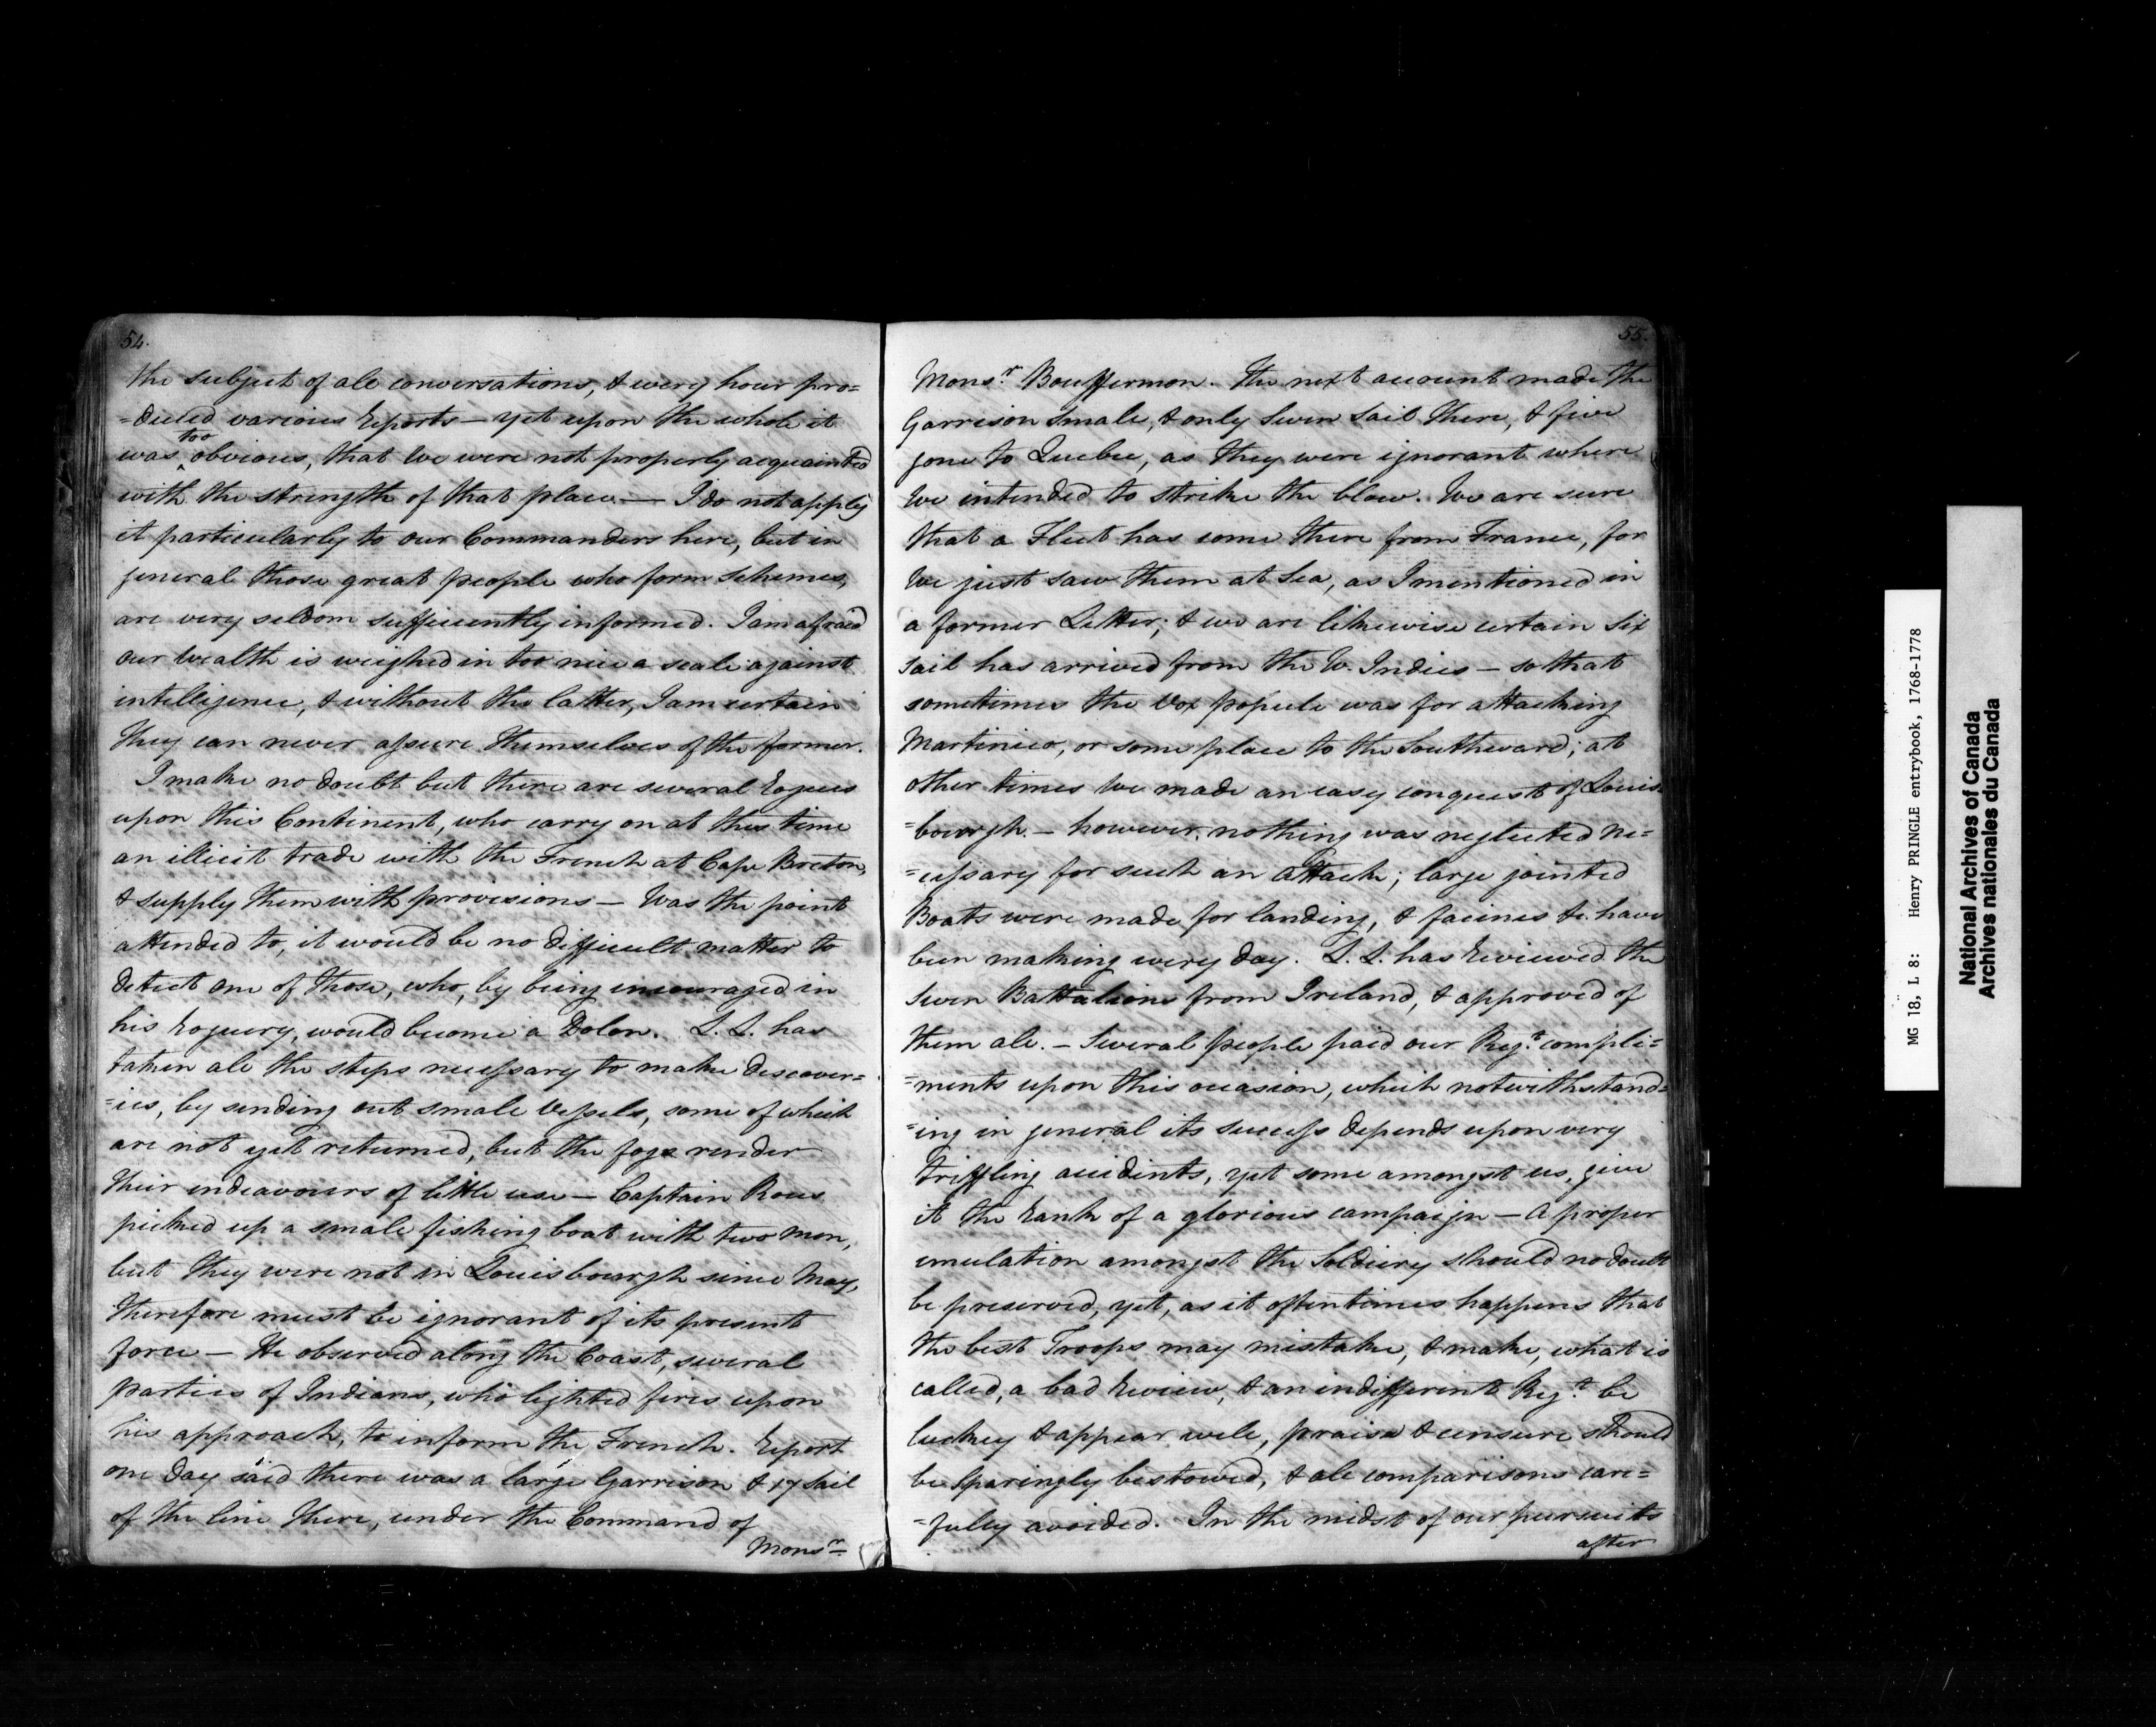 54.
the subject of all conversations, & every hour pro=
=duced various Reports – yet upon the whole it
too
was ^ obvious, that We were not properly acquainted
with the strength of that place. — I do not apply
it particularly to our Commanders here, but in
general those great people who form Schemes,
are very seldom sufficiently informed. I am afraid
our Wealth is weighed in too nice a scale against
intelligence, & without the latter, I am certain
they can never assure themselves of the former.
I make no doubt but there are several Rogues
upon this Continent, who carry on at this time
an illicit trade with the French at Cape Breton,
& supply them with provisions – Was the point
attended to, it would be no difficult matter to
detect one of those, who, by being incouraged in
his Roguery, would become a Dolon. L. L. has
taken all the steps necessary to make discover=
=ies, by sending out small Vessels, some of which
are not yet returned, but the fogs render
their endeavours of little use – Captain Rous
picked up a small fishing boat with two Men,
but they were not in Louisbourgh since May,
therefore must be ignorant of its present
force – He observed along the Coast, several
parties of Indians, who lighted fires upon
his approach, to inform the French. Report
one day said there was a large Garrison & 17 Sail
of the line there, under the Command of
Monsr
55.
Monsr. Bouffermon. The next account made the
Garrison small, & only Seven Sail there, & five
gone to Quebec, as they were ignorant where
We intended to strike the blow. We are sure
that a Fleet has come there from France, for
We just saw them at Sea, as I mentioned in
a former Letter; & we are likewise certain Six
Sail has arrived from the W. Indies – so that
sometimes the Vox populi was for attacking
Martinico, or some place to the Southward; at
other times We made an easy conquest of Louis=
=bourgh – however, nothing was neglected ne=
=cessary for such an Attack; large jointed
Boats were made for landing, & facines &c. have
been making every day. L. L. has Reviewed the
Seven Battalions from Ireland, & approved of
them all. – Several people paid our Regt. compli=
=ments upon this occasion, which notwithstand=
=ing in general its success depends upon very
triffling accidents, yet some amongst us, give
it the Rank of a glorious campaign – A proper
emulation amongst the Soldiery should no doubt
be preserved, yet, as it oftentimes happens that
the best Troops may mistake, & make, what is
called, a bad Review, & an indifferent Regt. be
luckey & appear well, praise & censure should
be Sparingly bestowed, & all comparisons care=
=fully avoided. In the midst of our pursuits
after
MG 18, L 8: Henry PRINGLE entrybook, 1768-1778
National Archives of Canada
Archives nationales du Canada